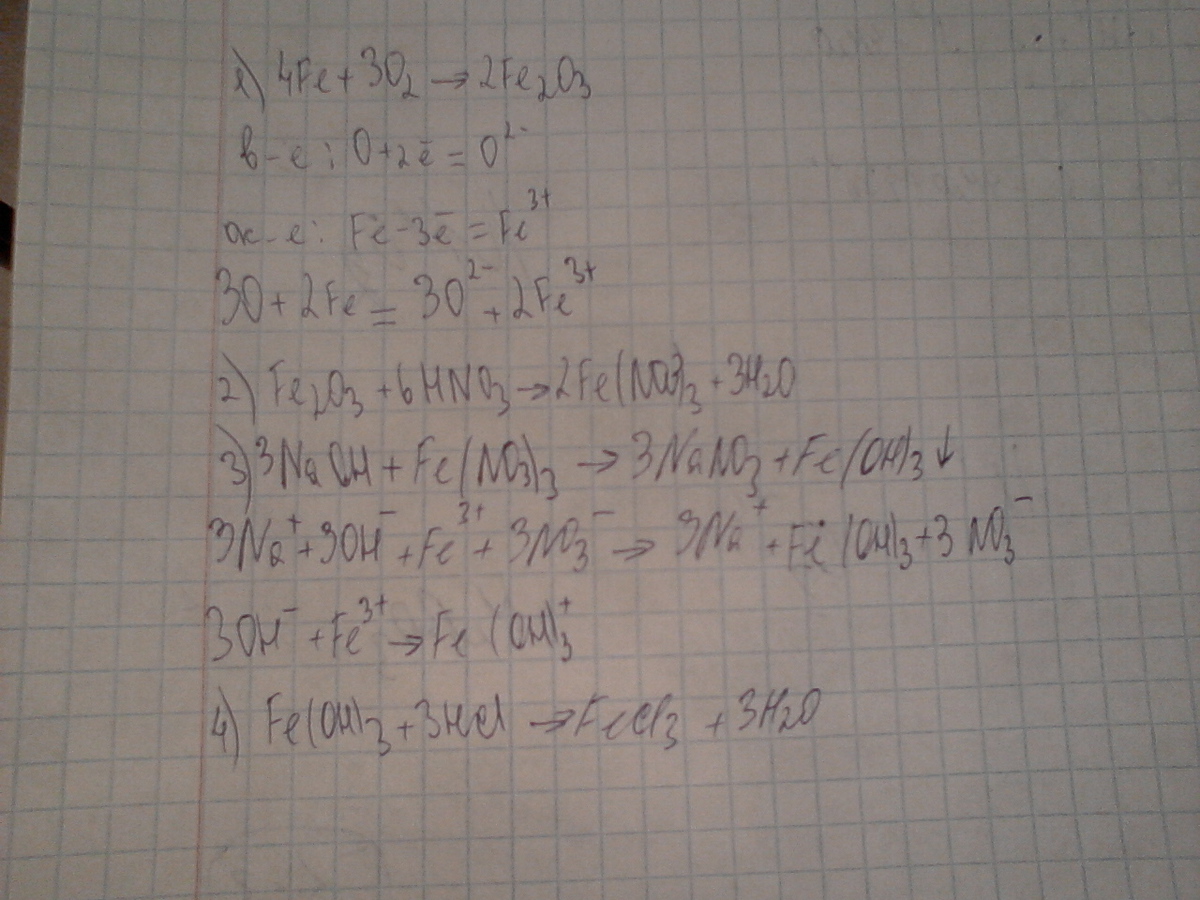 1) 4Fe + 3O₂ → 2Fe₂O₃
в-е: O + 2ē = O²⁻
ок-е: Fe - 3ē = Fe³⁺
3O + 2Fe = 3O²⁻ + 2Fe³⁺
2) Fe₂O₃ + 6HNO₃ → 2Fe(NO3)₃ + 3H₂O
3) 3NaOH + Fe(NO₃)₃ → 3NaNO₃ + Fe(OH)₃↓
3Na⁺ + 3OH⁻ + Fe³⁺ + 3NO₃⁻ → 3Na⁺ + Fe(OH)₃ + 3NO₃⁻
3OH⁻ + Fe³⁺ → Fe(OH)₃⁺
4) Fe(OH)₃ + 3HCl → FeCl₃ + 3H₂O